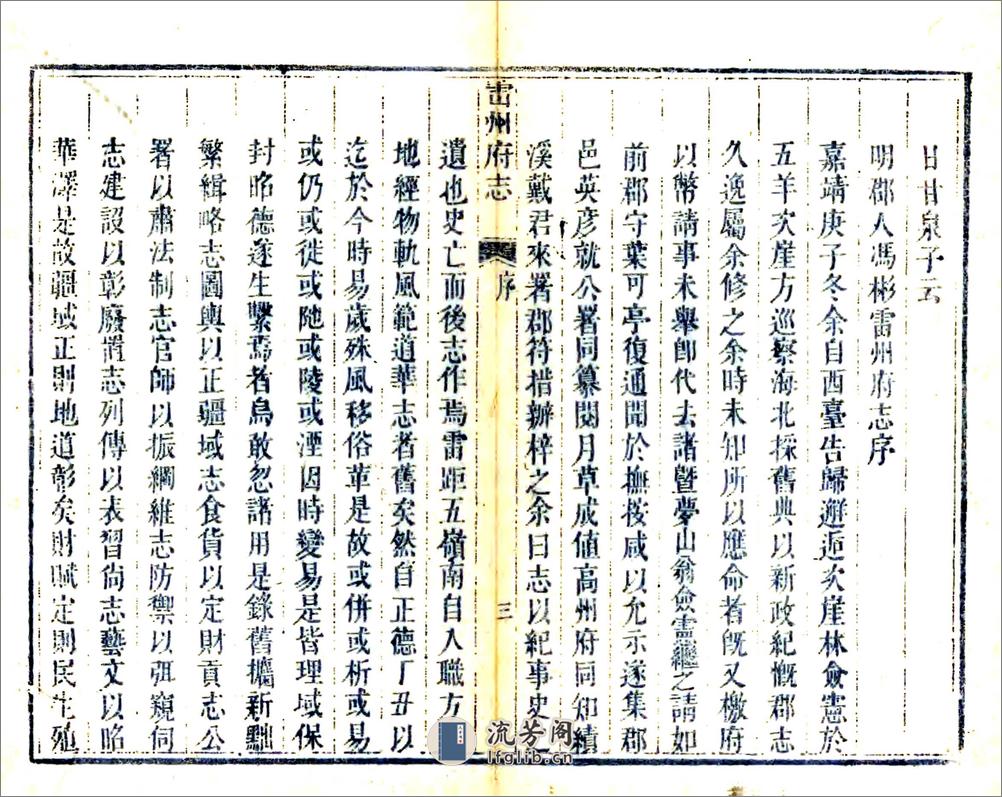 日甘泉子云
明郡人馮彬雷州府志序
嘉靖庚子冬余自西臺告歸邂逅次崖林僉憲於
五羊次崖方巡察海北採舊典以新政紀慨郡志
久逸屬余修之余時未知所以應命者旣又檄府
以幣請事未舉卽代去諸曁夢山翁僉憲繼之請如
前郡守葉可亭復通聞於撫按咸以允示遂集郡
邑英彥就公署同纂閱月草成値高州府同知績
溪戴君來署郡符措辦梓之余曰志以紀事史之
遺也史亡而後志作焉雷距五嶺南自入職方
雷州府志
序
三
地經物軌風範道華志者舊矣然自正德丁丑以
迄於今時易歲殊風移俗革是故或併或析或易
或仍或徙或阤或陵或湮因時變易是皆理域保
封昭德遂生繫焉者烏敢忽諸用是錄舊攟新黜
繁緝略志圖輿以正疆域志食貨以定財貢志公
署以肅法制志官師以振綱維志防禦以弭窺伺
志建設以彰廢置志列傳以表習尙志藝文以昭
華澤是故疆域正則地道彰矣財賦定則民生殖
流芳阁
lfglib.cn